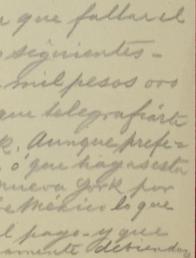 que faltar el
siguientes -
mil pesos oro
que telegrafiárte
K. Aunque prefe=
ó que hagas esta
nueva York por
de México lo que
l pago - y que
amente debiendo